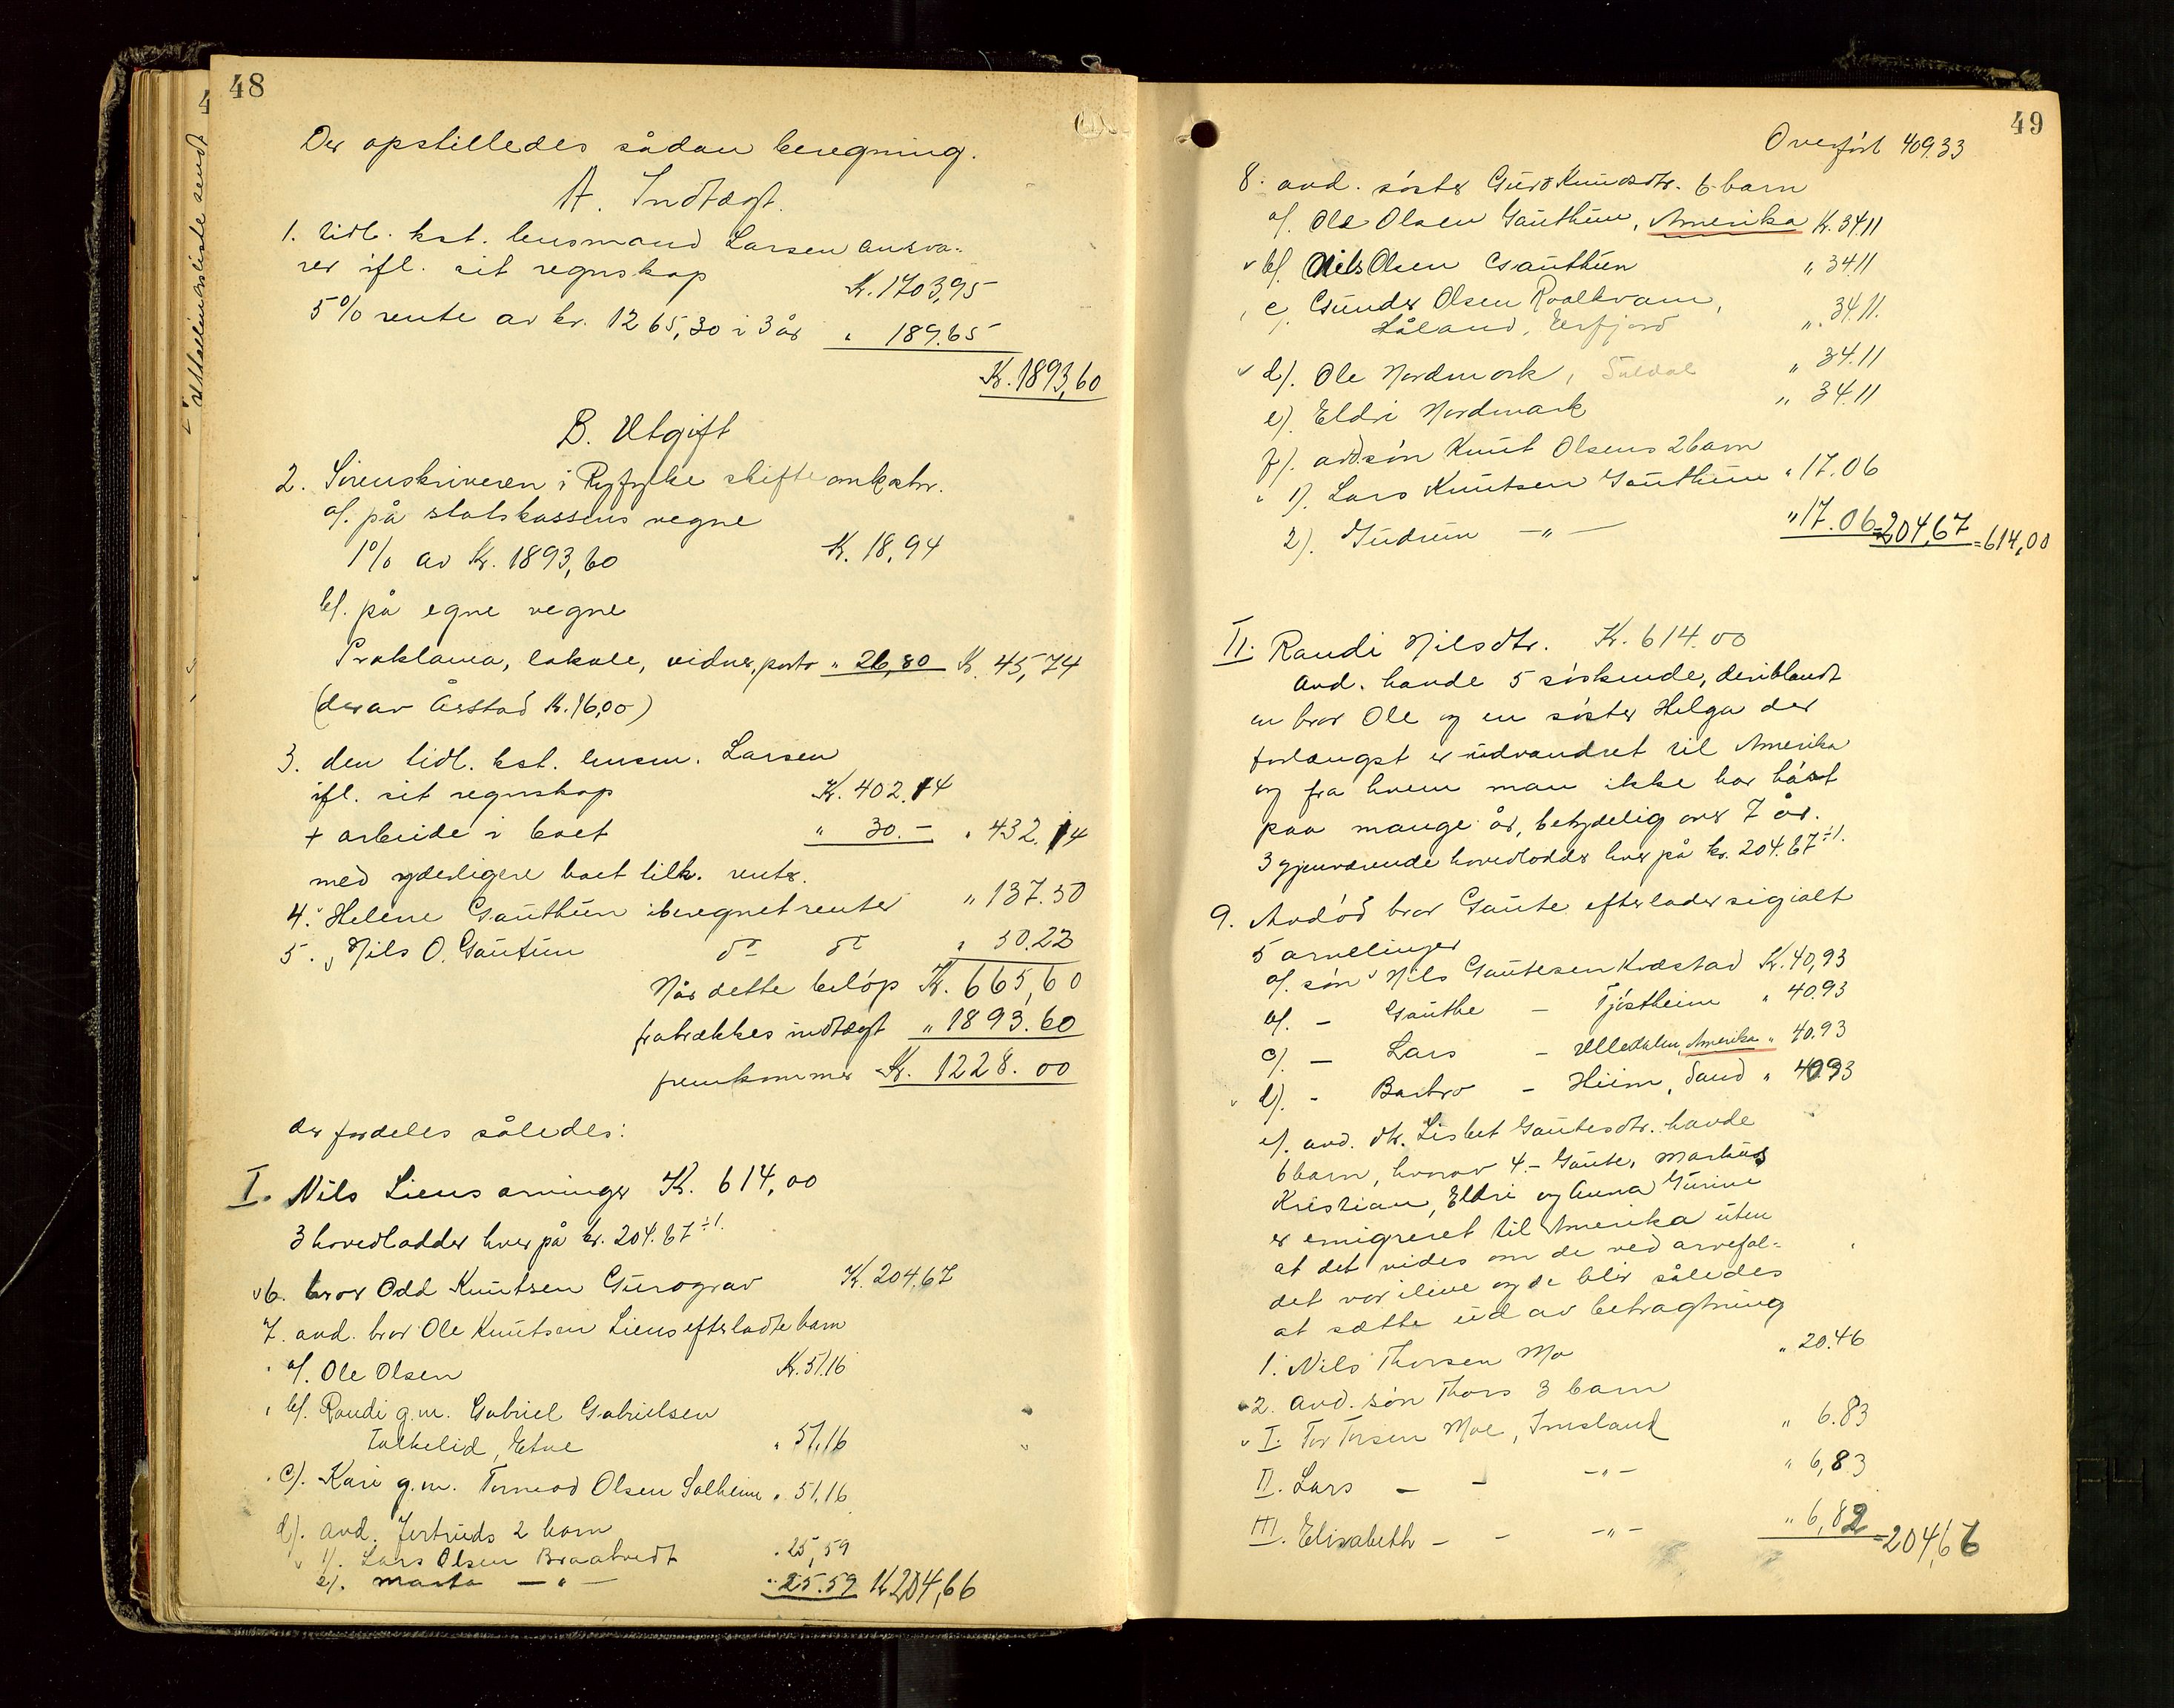 48
Der opstilledes sådan beregning.
A. Indtægt.
1. tidl. kst. lensmand Larsen ansva-
rer ifl. sit regnskap K. 1703,95
5% rente av kr. 1265,30 i 3 år " 189.65
K. 1893,60
B. Utgift
2. Sorenskriveren i Ryfylke skifteomkostn.
a/. på statskassens vegne
1% av K. 1893,60 K. 18,94
b/. på egne vegne
Proklama, lokale, vidner, porto " 26,80 K. 45,74
(derav Årstad K. 16,00)
3. den tidl. kst. lensm. Larsen
ifl. sit regnskap K. 402.14
+ arbeide i boet " 30.- " 432.14
med yderligere boet tilk. renter.
4. Helene Gauthun iberegnet renter " 137.50
5. Nils O. Gautun do do " 50.22
Når dette beløp K. 665,60
fratrækkes indtægt " 1893.60
fremkommer K. 1228.00
der fordeles således:
I. Nils Liens arvinger K. 614,00
3 hovedlodder hver på kr. 204.67 ÷1.
6. bror Odd Knutsen Gurograv K. 204,67
7. avd. bror Ole Knutsen Liens efterladte barn
a/. Ole Olsen K. 51.16
b/. Randi g.m. Gabriel Gabrielsen
Talkelid, Etne " 51.16
c/. Kari g.m. Tormod Olsen Solheim " 51.16
d/. avd. Jertruds 2 barn
1/. Lars Olsen Braatvedt " 25,59
2/. Marta — " — " 25.59 K 204,66
49
Overført 409.33
8. avd. søster Guro Knudsdtr. 6 barn
a/. Ole Olsen Gauthun, Amerika K. 34.11
b/. Nils Olsen Gauthun " 34.11
c/. Gunder Olsen Roalkvam,
Håland, Erfjord " 34.11.
d/. Ole Nordmork, Suldal " 34.11
e/. Eldri Nordmark " 34.11
f/. avd. søn Knut Olsens 2 barn
1/. Lars Knutsen Gauthun " 17.06
2/. Gudrun — " — " 17.06 = 204,67 = 614,00
II. Randi Nilsdtr. K. 614.00
Avd. havde 5 søskende, deriblandt
en bror Ole og en søster Helga der
forlængst er udvandret til Amerika
og fra hvem man ikke har hørt
paa mange år, betydelig over 7 år.
3 gjenværende hovedlodder hver på kr. 204.67 ÷1.
9. Avdød bror Gaute efterlader sig ialt
5 arvelinger
a/. søn Nils Gautesen Kvæstad K. 40,93
b/. - Gauthe - Tjøstheim " 40.93
c/. - Lars - Ulledalen, Amerika " 40.93
d/. - Barbro - Hiim, Sand " 40.93
e/. avd. dtr. Lisbet Gautesdtr. havde
6 barn, hvorav 4. - Gaute, Martinus
Kristian, Eldri og Anna Gurine
er emigreret til Amerika uten
at det vides om de ved arvefal-
det var ilive og de blir således
at sætte ud av betragtning
1. Nils Thorsen Mo " 20.46
2. avd. søn Thors 3 barn
I. Tor Torsen Moe, Imsland " 6.83
II. Lars - - " - " 6,83
III. Elisabeth - - - " - " 6,82 = 204,66